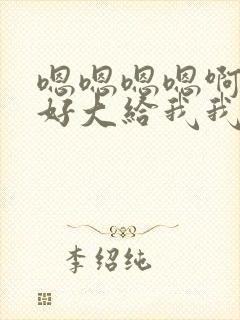 嗯嗯嗯嗯啊
好大给我我
李绍纯